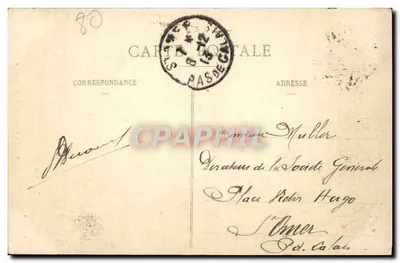 80
CARTE POSTALE
8-12
13
PAS DE CALAIS
CORRESPONDANCE
ADRESSE
Monsieur Muller
Directeur de la Société Générale
Place Victor Hugo
St Omer
Pd. Calais
Carte-Postale